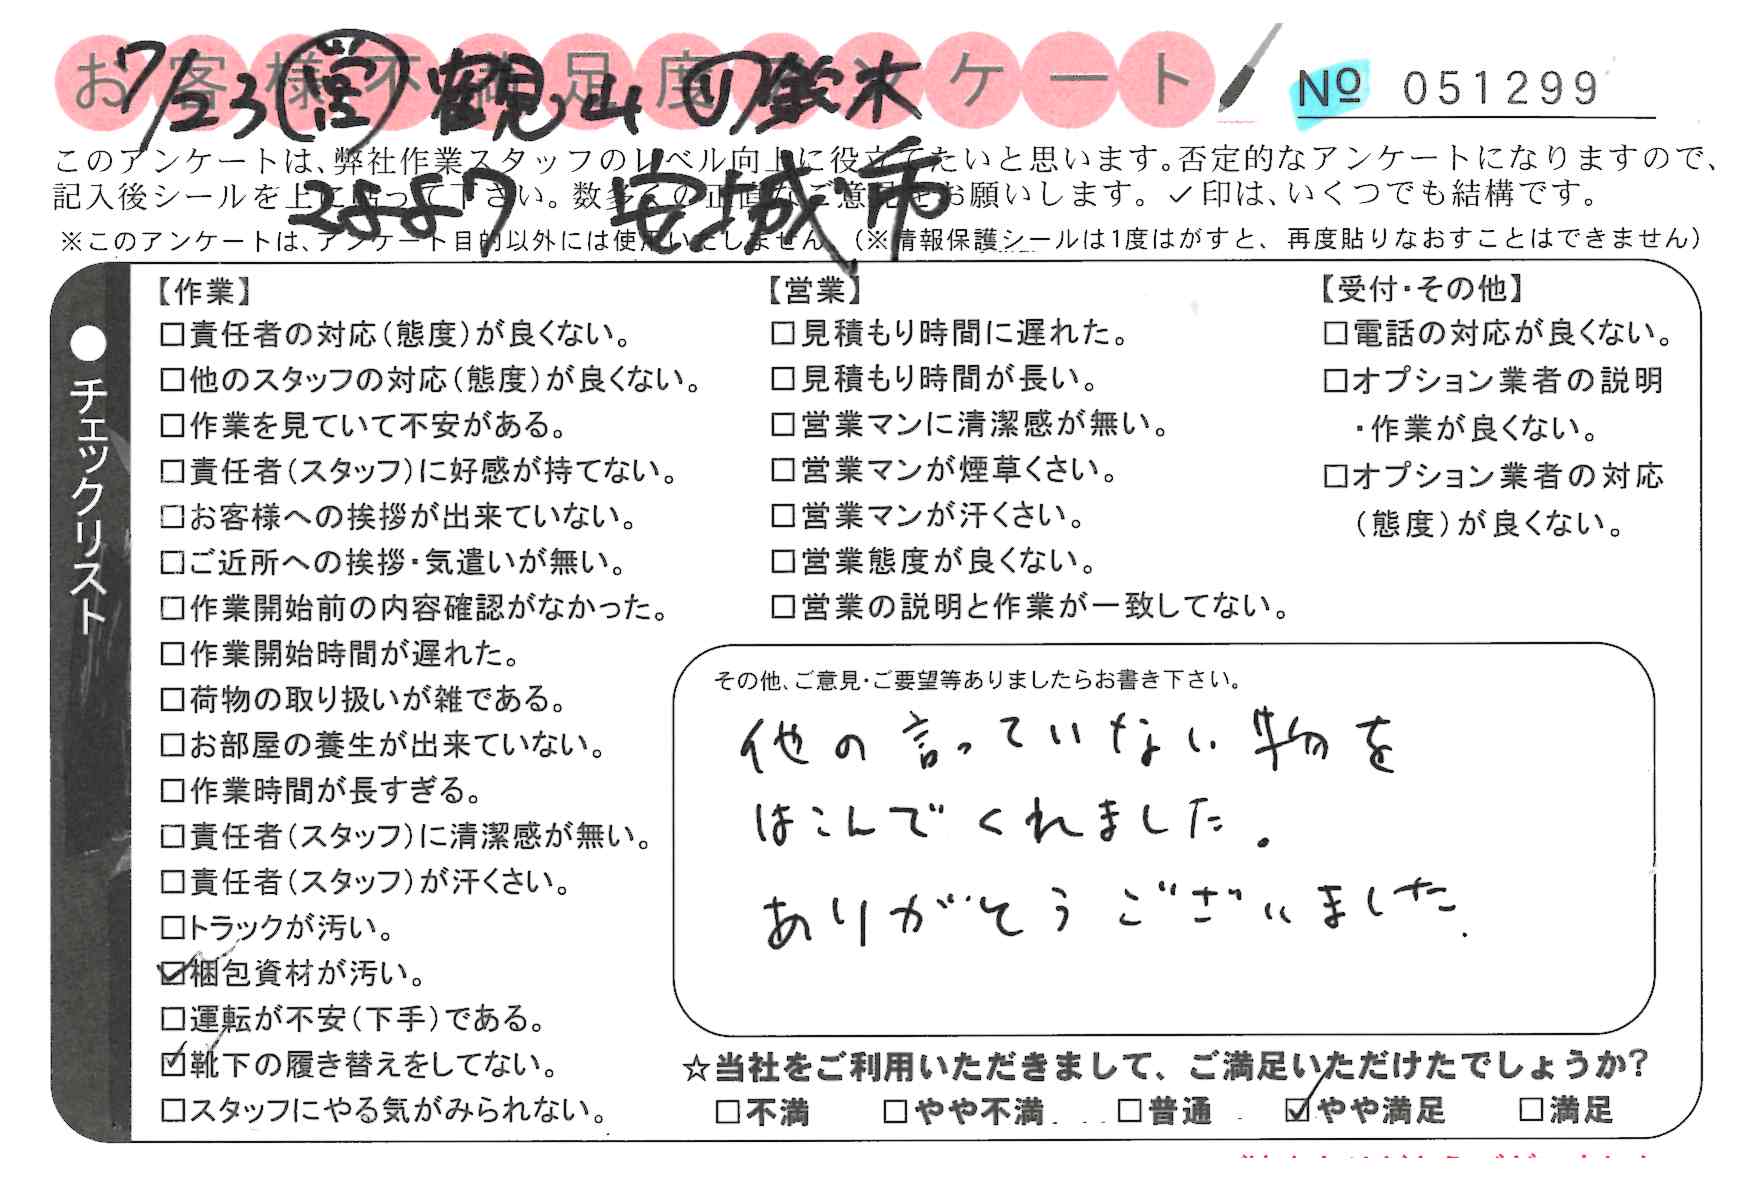 お客様不満足度アンケート
№ 051299
7/23 営 鶴見山 リ 鈴木
2887 安城市
このアンケートは、弊社作業スタッフのレベル向上に役立てたいと思います。否定的なアンケートになりますので、
記入後シールを上に貼って下さい。数多くの正直なご意見をお願いします。✓印は、いくつでも結構です。
※このアンケートは、アンケート目的以外には使用いたしません。(※情報保護シールは1度はがすと、再度貼りなおすことはできません)
●チェックリスト
【作業】
□責任者の対応(態度)が良くない。
□他のスタッフの対応(態度)が良くない。
□作業を見ていて不安がある。
□責任者(スタッフ)に好感が持てない。
□お客様への挨拶が出来ていない。
□ご近所への挨拶・気遣いが無い。
□作業開始前の内容確認がなかった。
□作業開始時間が遅れた。
□荷物の取り扱いが雑である。
□お部屋の養生が出来ていない。
□作業時間が長すぎる。
□責任者(スタッフ)に清潔感が無い。
□責任者(スタッフ)が汗くさい。
□トラックが汚い。
☑梱包資材が汚い。
□運転が不安(下手)である。
☑靴下の履き替えをしてない。
□スタッフにやる気がみられない。
【営業】
□見積もり時間に遅れた。
□見積もり時間が長い。
□営業マンに清潔感が無い。
□営業マンが煙草くさい。
□営業マンが汗くさい。
□営業態度が良くない。
□営業の説明と作業が一致してない。
【受付・その他】
□電話の対応が良くない。
□オプション業者の説明
・作業が良くない。
□オプション業者の対応
(態度)が良くない。
その他、ご意見・ご要望等ありましたらお書き下さい。
他の言っていない物を
はこんでくれました。
ありがとうございました.
☆当社をご利用いただきまして、ご満足いただけたでしょうか?
□不満 □やや不満 □普通 ☑やや満足 □満足